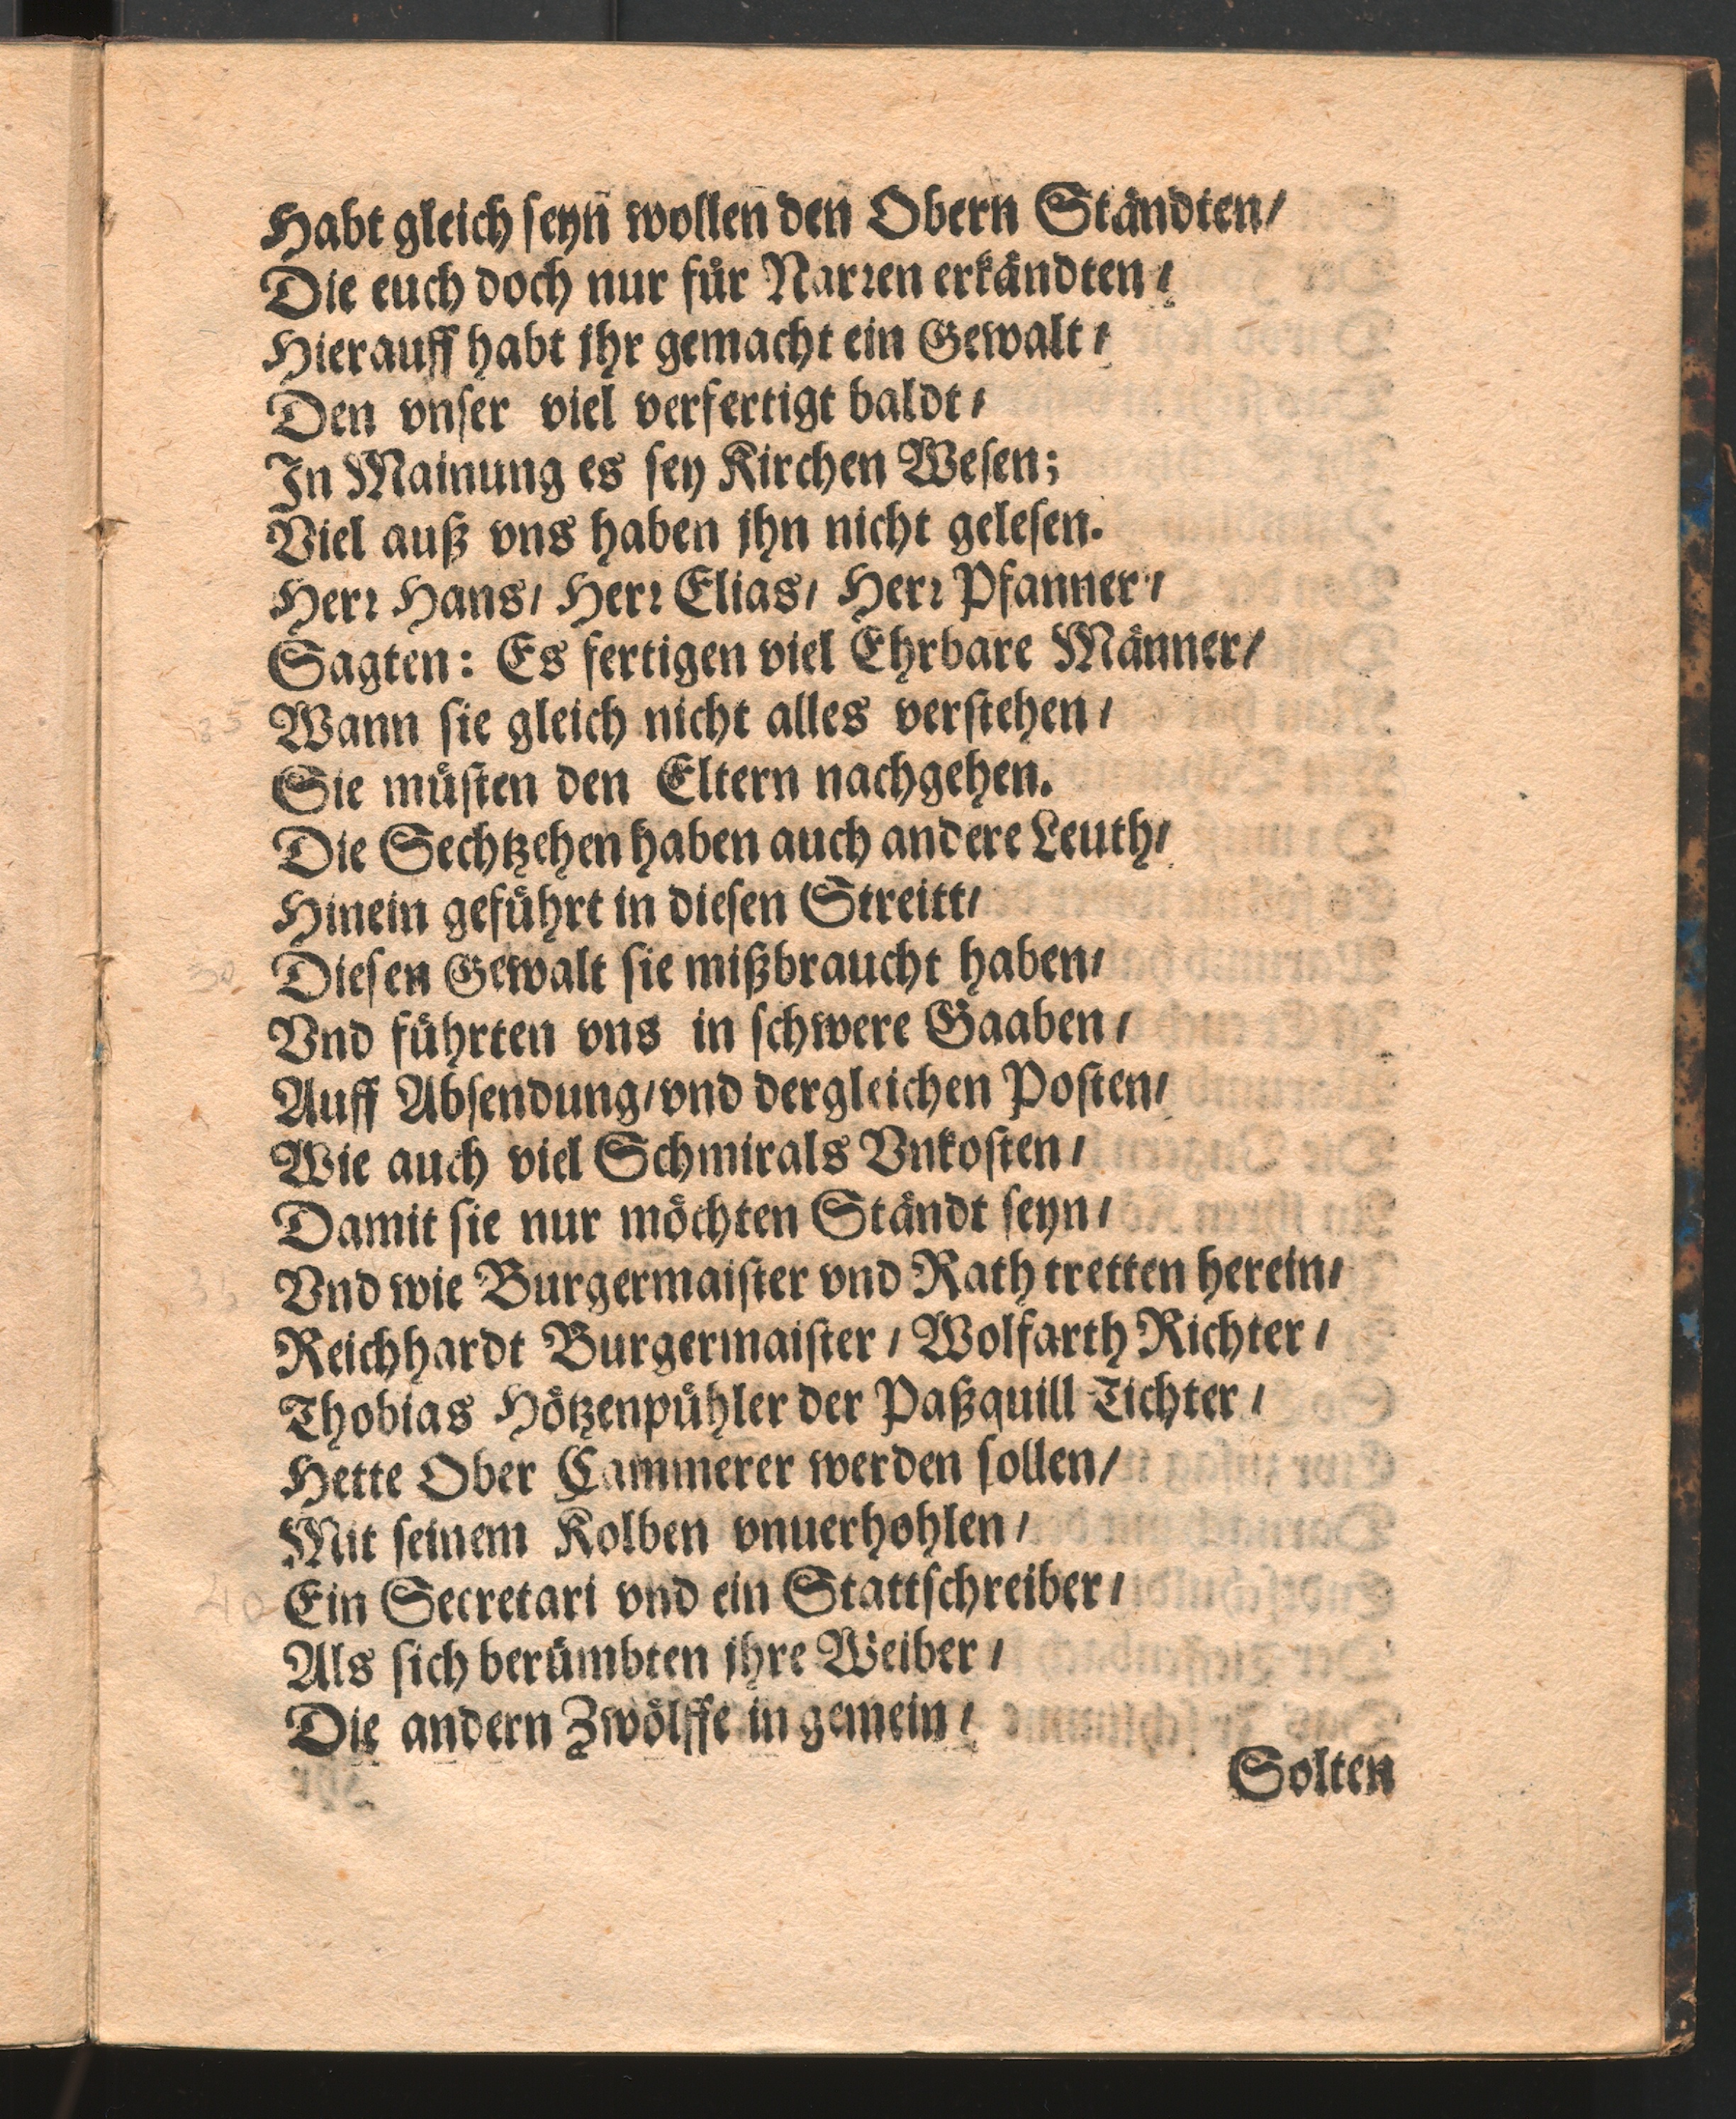 Habt gleich seyn wollen den Obern Ständten/
Die euch doch nur für Narren erkändten/
Hierauff habt jhr gemacht ein Gewalt/
Den vnser viel verfertigt baldt/
In Mainung es sey Kirchen Wesen;
Viel auß vns haben jhn nicht gelesen.
Herr Hans/ Herr Elias/ Herr Pfanner/
Sagten: Es fertigen viel Ehrbare Männer/
Wann sie gleich nicht alles verstehen/
Sie müsten den Eltern nachgehen.
Die Sechtzehen haben auch andere Leuth/
Hinein geführt in diesen Streitt/
Diesen Gewalt sie mißbraucht haben/
Vnd führten vns in schwere Gaaben/
Auff Absendung/vnd dergleichen Posten/
Wie auch viel Schmirals Vnkosten/
Damit sie nur möchten Ständt seyn/
Vnd wie Burgermaister vnd Rath tretten herein/
Reichhardt Burgermaister/ Wolfarth Richter/
Thobias Hötzenpühler der Paßquill Tichter/
Hette Ober Cammerer werden sollen/
Mit seinem Kolben vnuerhohlen/
Ein Secretari vnd ein Stattschreiber/
Als sich berümbten jhre Weiber/
Die andern Zwölffe in gemein/
Solten